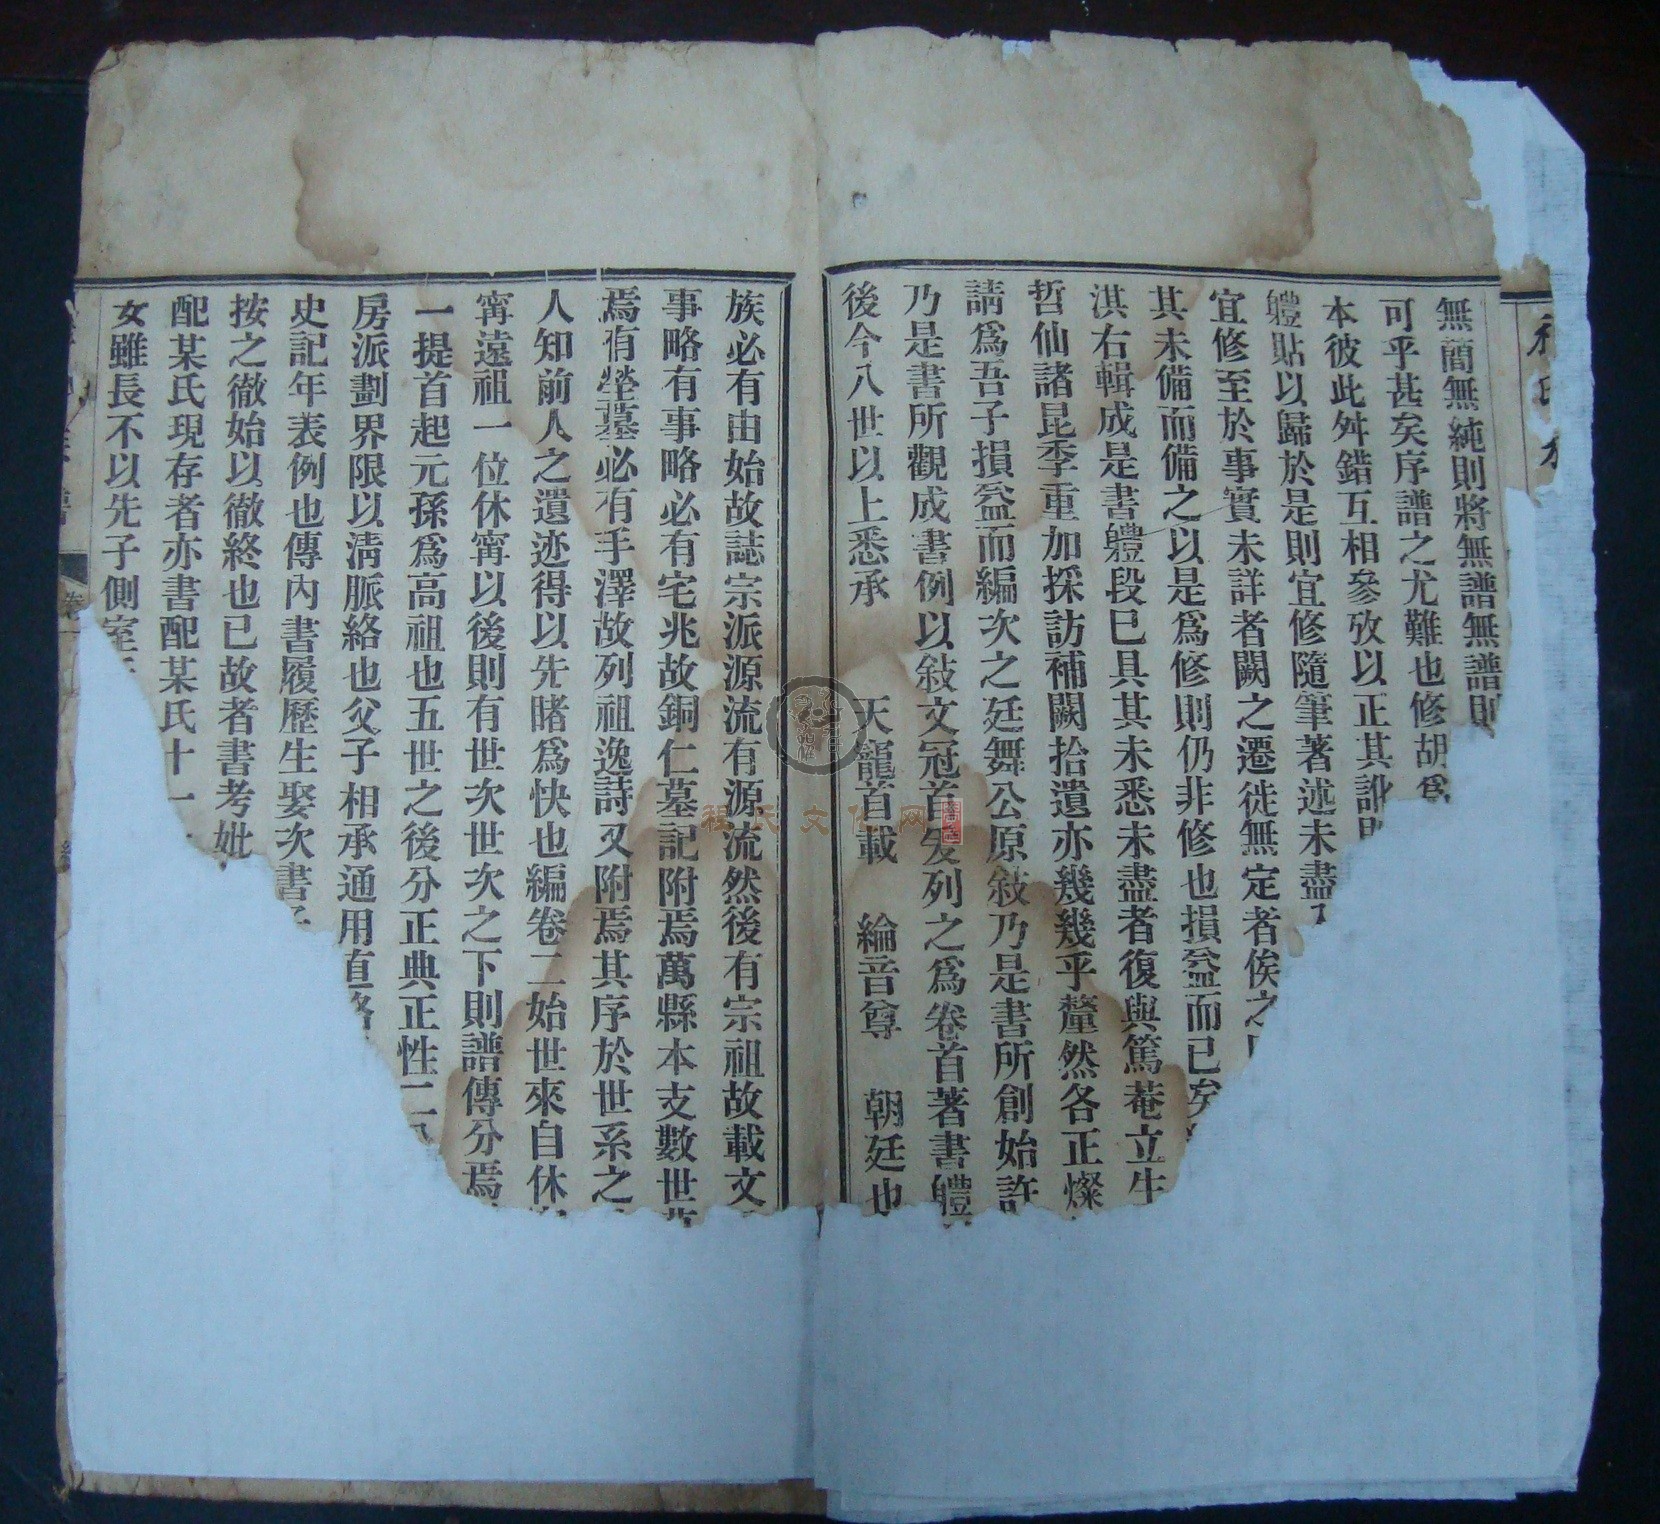 無簡無純則將無譜無譜則
可乎甚矣序譜之尤難也修胡爲
本彼此舛錯互相參攷以正其訛
軆貼以歸於是則宜修隨筆著述未盡
宜修至於事實未詳者闕之遷徙無定者俟之
其未備而備之以是爲修則仍非修也損益而已矣
淇右輯成是書軆段已具其未悉未盡者復與篤菴立生
哲仙諸昆季重加採訪補闕拾遺亦幾幾乎釐然各正燦
請爲吾子損益而編次之廷舞公原敍乃是書所創始許
乃是書所觀成書例以敍文冠首爰列之爲卷首著書軆
後今八世以上悉承 天寵首載 綸音尊 朝廷也
族必有由始故誌宗派源流有源流然後有宗祖故載文
事略有事略必有宅兆故銅仁墓記附焉萬縣本支數世
焉有塋墓必有手澤故列祖逸詩又附焉其序於世系之
人知前人之遺迹得以先睹爲快也編卷二始世來自休
甯遠祖一位休甯以後則有世次世次之下則譜傳分焉
一提首起元孫爲高祖也五世之後分正典正性二
房派劃界限以清脈絡也父子相承通用直
史記年表例也傳內書履歷生娶次書子
按之徹始以徹終也已故者書考妣
配某氏現存者亦書配某氏十一
女雖長不以先子側室
程氏文化网